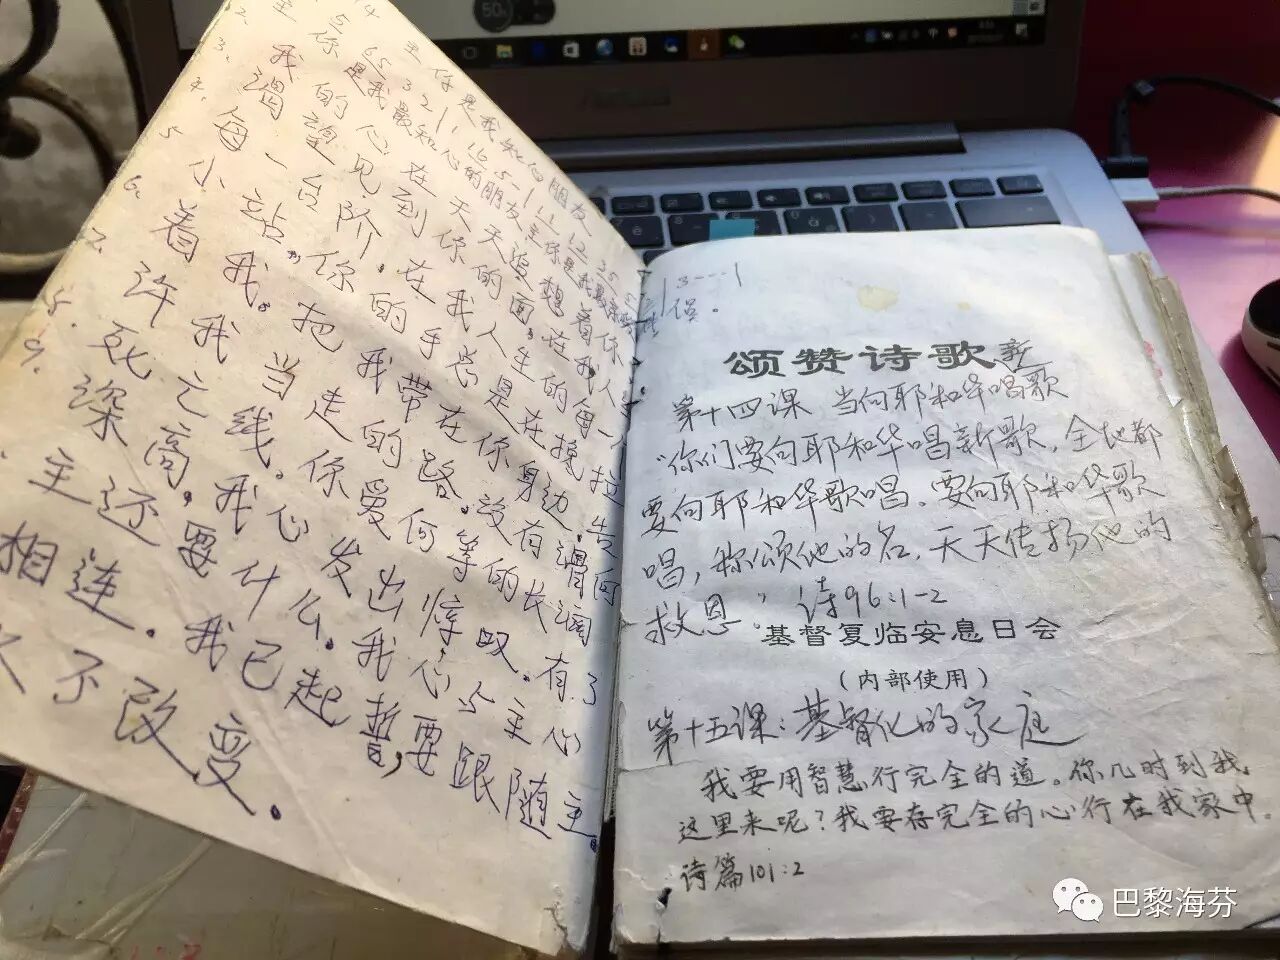 主你是我知心朋友
你是我最知心的朋友,主你是我
我的心在天天追想着你
渴望见到你的面,在我人
每一台阶,在我人生的每一
小站,你的手总是在挽拉
着我。把我带在你身边,
许我当走的路。没有
死之线。你爱何等的长阔
深高,我心发出惊叹。有了
主还要什么。我心与主心
相连。我已起誓,要跟随主
不改变。
3---1
误。
颂赞诗歌
第十四课 当向耶和华唱歌
"你们要向耶和华唱新歌,全地都
要向耶和华歌唱。要向耶和华歌
唱,称颂他的名,天天传扬他的
救恩。"诗96:1-2
基督复临安息日会
(内部使用)
第十五课:基督化的家庭
我要用智慧行完全的道。你几时到我
这里来呢?我要存完全的心行在我家中。
诗篇101:2
巴黎海芬